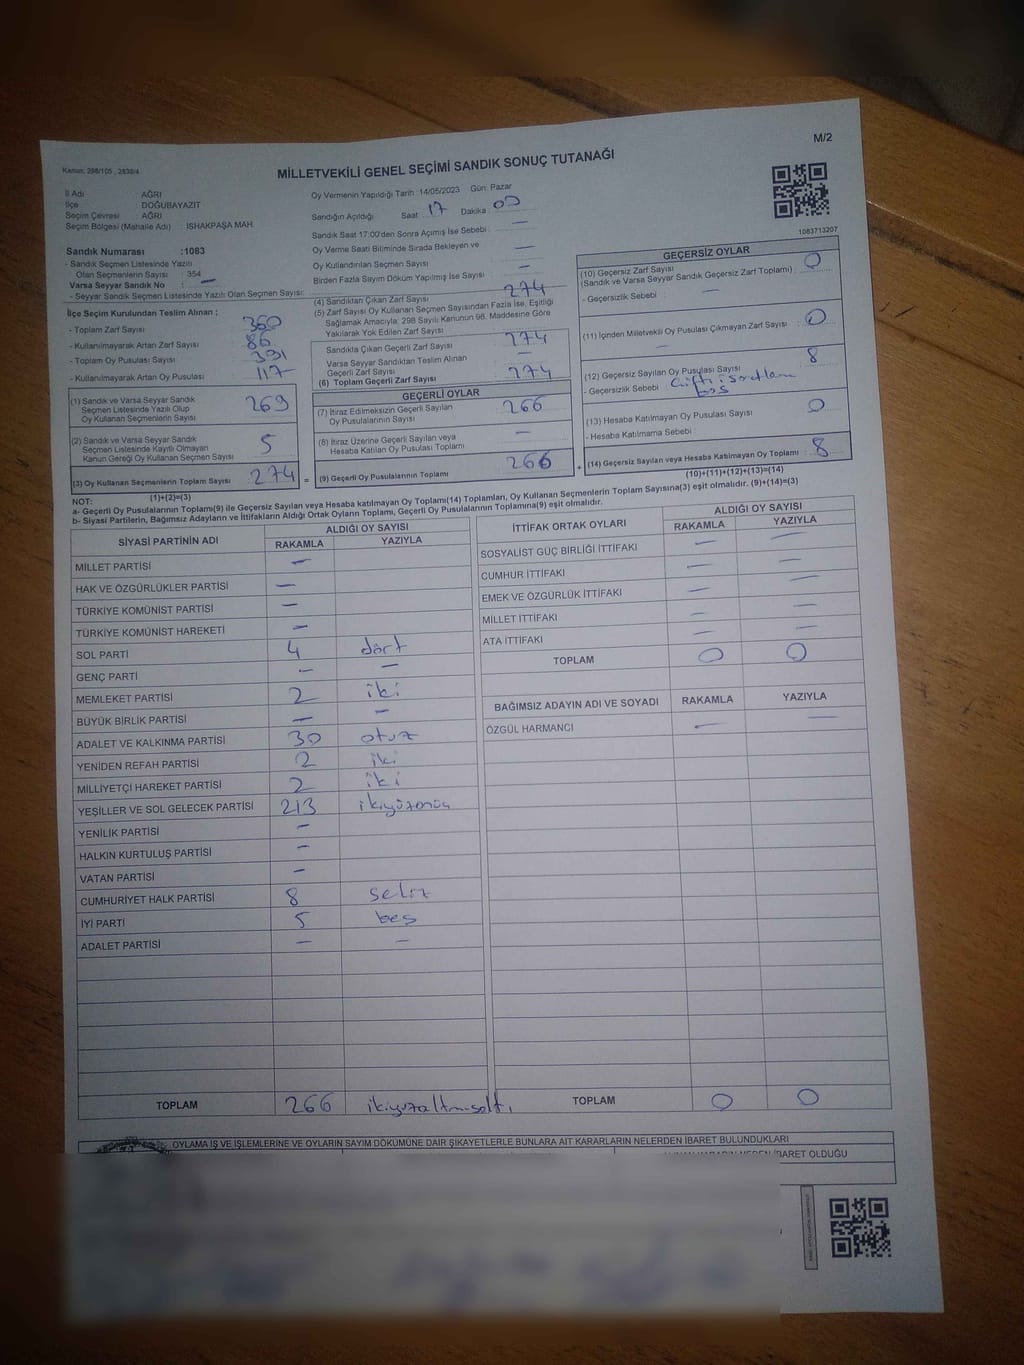 M/2
Kanun: 298/105 , 2839/4
MİLLETVEKİLİ GENEL SEÇİMİ SANDIK SONUÇ TUTANAĞI
İl Adı AĞRI
İlçe DOĞUBAYAZIT
Seçim Çevresi AĞRI
Seçim Bölgesi (Mahalle Adı) ISHAKPAŞA MAH.
Oy Vermenin Yapıldığı Tarih 14/05/2023 Gün: Pazar
Sandığın Açıldığı Saat : 17 Dakika : 00
Sandık Saat 17:00'den Sonra Açımış İse Sebebi : —
Oy Verme Saati Bitiminde Sırada Bekleyen ve
Oy Kullandırılan Seçmen Sayısı : —
Birden Fazla Sayım Döküm Yapılmış İse Sayısı : —
1083713207
Sandık Numarası :1083
- Sandık Seçmen Listesinde Yazılı
Olan Seçmenlerin Sayısı : 354
Varsa Seyyar Sandık No : —
- Seyyar Sandık Seçmen Listesinde Yazılı Olan Seçmen Sayısı:
İlçe Seçim Kurulundan Teslim Alınan ;
- Toplam Zarf Sayısı : 360
- Kullanılmayarak Artan Zarf Sayısı : 86
- Toplam Oy Pusulası Sayısı : 391
- Kullanılmayarak Artan Oy Pusulası : 117
(1) Sandık ve Varsa Seyyar Sandık
Seçmen Listesinde Yazılı Olup
Oy Kullanan Seçmenlerin Sayısı : 269
(2) Sandık ve Varsa Seyyar Sandık
Seçmen Listesinde Kayıtlı Olmayan
Kanun Gereği Oy Kullanan Seçmen Sayısı : 5
(3) Oy Kullanan Seçmenlerin Toplam Sayısı : 274
(1)+(2)=(3)
(4) Sandıktan Çıkan Zarf Sayısı : 274
(5) Zarf Sayısı Oy Kullanan Seçmen Sayısından Fazla İse, Eşitliği
Sağlamak Amacıyla; 298 Sayılı Kanunun 98. Maddesine Göre
Yakılarak Yok Edilen Zarf Sayısı :
Sandıkta Çıkan Geçerli Zarf Sayısı : 274
Varsa Seyyar Sandıktan Teslim Alınan
Geçerli Zarf Sayısı : —
(6) Toplam Geçerli Zarf Sayısı : 274
GEÇERLİ OYLAR
(7) İtiraz Edilmeksizin Geçerli Sayılan
Oy Pusulalarının Sayısı : 266
(8) İtiraz Üzerine Geçerli Sayılan veya
Hesaba Katılan Oy Pusulası Toplamı : —
(9) Geçerli Oy Pusulalarının Toplamı : 266
GEÇERSİZ OYLAR
(10) Geçersiz Zarf Sayısı
(Sandık ve Varsa Seyyar Sandık Geçersiz Zarf Toplamı) : 0
- Geçersizlik Sebebi : —
(11) İçinden Milletvekili Oy Pusulası Çıkmayan Zarf Sayısı : 0
—
(12) Geçersiz Sayılan Oy Pusulası Sayısı : 8
- Geçersizlik Sebebi :
boş
(13) Hesaba Katılmayan Oy Pusulası Sayısı : 0
- Hesaba Katılmama Sebebi :
(14) Geçersiz Sayılan veya Hesaba Katılmayan Oy Toplamı : 8
(10)+(11)+(12)+(13)=(14)
NOT:
a- Geçerli Oy Pusulalarının Toplamı(9) ile Geçersiz Sayılan veya Hesaba katılmayan Oy Toplamı(14) Toplamları, Oy Kullanan Seçmenlerin Toplam Sayısına(3) eşit olmalıdır. (9)+(14)=(3)
b- Siyasi Partilerin, Bağımsız Adayların ve İttifakların Aldığı Ortak Oyların Toplamı, Geçerli Oy Pusulalarının Toplamına(9) eşit olmalıdır.
SİYASİ PARTİNİN ADI ALDIĞI OY SAYISI
RAKAMLA YAZIYLA
MİLLET PARTİSİ —
HAK VE ÖZGÜRLÜKLER PARTİSİ —
TÜRKİYE KOMÜNİST PARTİSİ —
TÜRKİYE KOMÜNİST HAREKETİ —
SOL PARTİ 4 dört
GENÇ PARTİ — —
MEMLEKET PARTİSİ 2 iki
BÜYÜK BİRLİK PARTİSİ — —
ADALET VE KALKINMA PARTİSİ 30 otuz
YENİDEN REFAH PARTİSİ 2 iki
MİLLİYETÇİ HAREKET PARTİSİ 2 iki
YEŞİLLER VE SOL GELECEK PARTİSİ 213 ikiyüzonüç
YENİLİK PARTİSİ —
HALKIN KURTULUŞ PARTİSİ —
VATAN PARTİSİ —
CUMHURİYET HALK PARTİSİ 8 sekiz
İYİ PARTİ 5 beş
ADALET PARTİSİ — —
TOPLAM 266 ikiyüzaltmışaltı
İTTİFAK ORTAK OYLARI ALDIĞI OY SAYISI
RAKAMLA YAZIYLA
SOSYALİST GÜÇ BİRLİĞİ İTTİFAKI — —
CUMHUR İTTİFAKI — —
EMEK VE ÖZGÜRLÜK İTTİFAKI — —
MİLLET İTTİFAKI — —
ATA İTTİFAKI — —
TOPLAM 0 0
BAĞIMSIZ ADAYIN ADI VE SOYADI RAKAMLA YAZIYLA
ÖZGÜL HARMANCI — —
TOPLAM 0 0
OYLAMA İŞ VE İŞLEMLERİNE VE OYLARIN SAYIM DÖKÜMÜNE DAİR ŞİKAYETLERLE BUNLARA AİT KARARLARIN NELERDEN İBARET BULUNDUKLARI
İBARET OLDUĞU